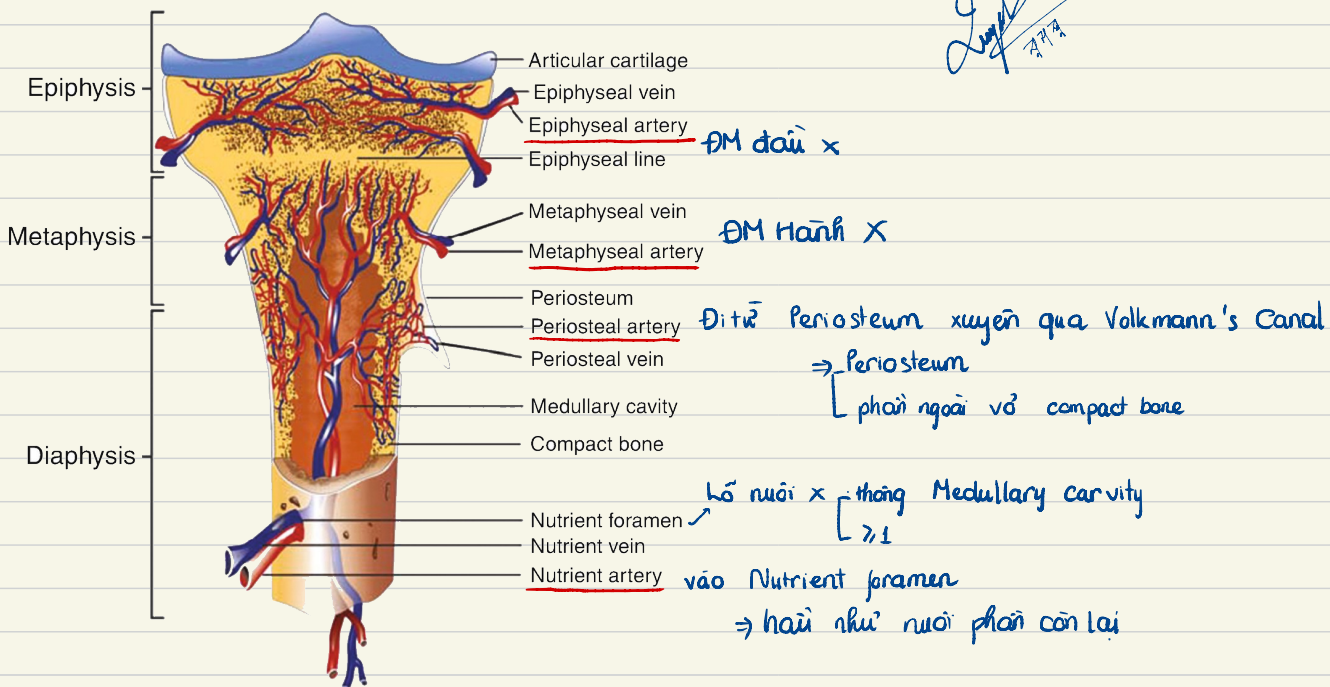 Epiphysis
Articular cartilage
Epiphyseal vein
Epiphyseal artery ĐM đầu x
Epiphyseal line
Metaphysis
Metaphyseal vein
Metaphyseal artery ĐM Hành X
Periosteum
Periosteal artery Đi từ Periosteum xuyên qua Volkmann's Canal
Periosteal vein ⇒ Periosteum
phần ngoài vỏ compact bone
Medullary cavity
Compact bone
Diaphysis
Nutrient foramen Lỗ nuôi x thông Medullary carvity
≥1
Nutrient vein
Nutrient artery vào Nutrient foramen
⇒ hầu như nuôi phần còn lại